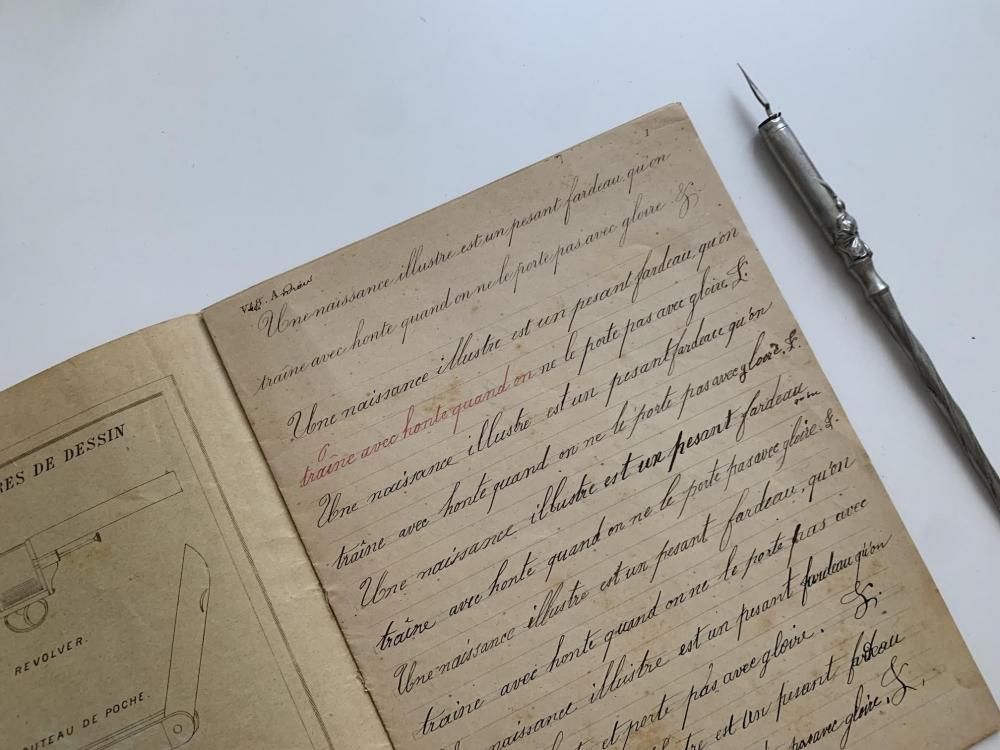 RES DE DESSIN
REVOLVER.
UTEAU DE POCHE.
1
Une naissance illustre est un pesant fardeau, qu'on
traîne avec honte quand on ne le porte pas avec gloire. &
Une naissance illustre est un pesant fardeau, qu'on
traîne avec honte quand on ne le porte pas avec gloire. &.
Une naissance illustre est un pesant fardeau qu'on
traîne avec honte quand on ne le porte pas avec gloire. &.
Une naissance illustre est un pesant fardeau
qu'on
traîne avec honte quand on ne le porte pas avec gloire. &.
Une naissance illustre est un pesant fardeau, qu'on
traîne avec honte quand on ne le porte pas avec
naissance illustre est un pesant fardeau qu'on
&.
et porte pas avec gloire.
est un pesant fardeau
pas avec gloire. &.